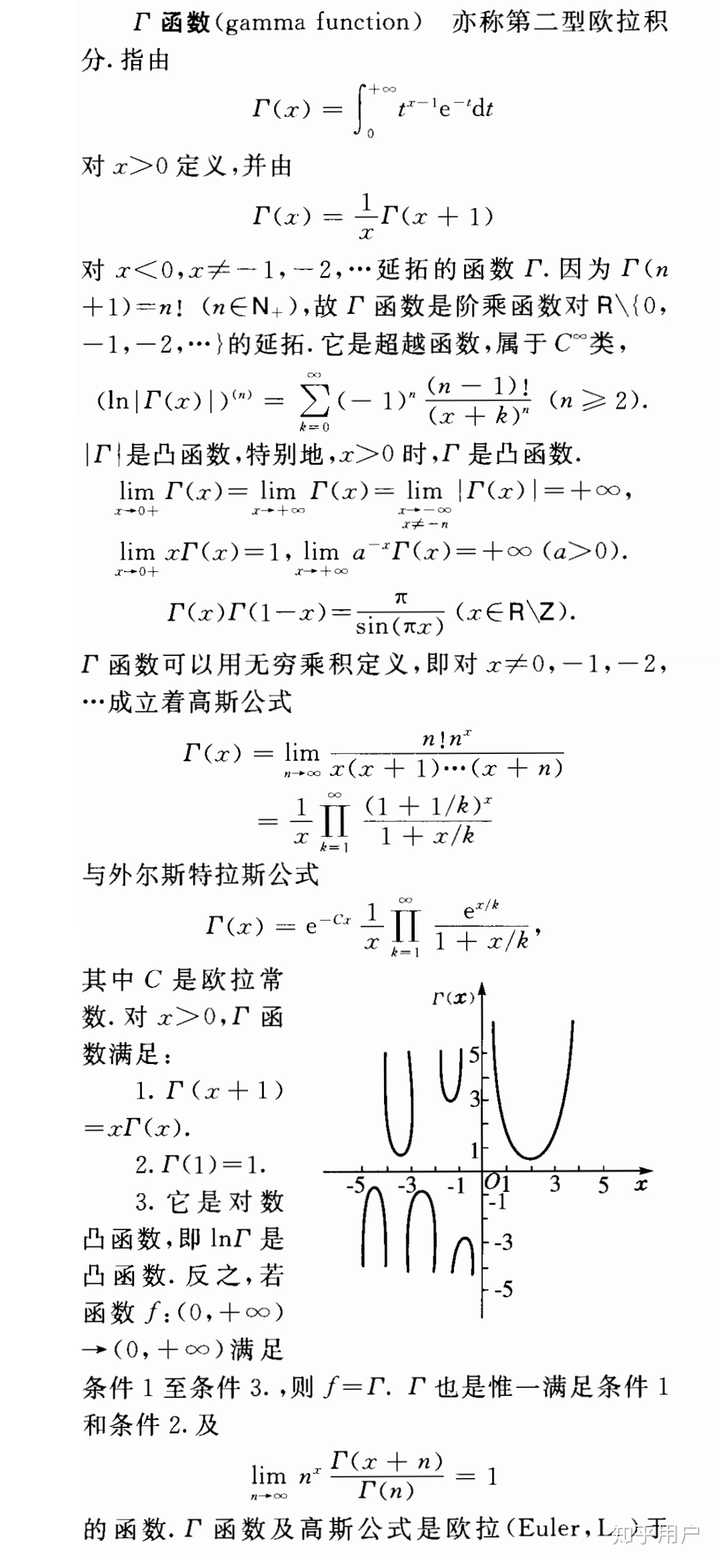 Γ 函数(gamma function) 亦称第二型欧拉积
分.指由
Γ(x) = ∫₀^{+∞} t^{x-1}e^{-t}dt
对 x>0 定义,并由
Γ(x) = \frac{1}{x}Γ(x + 1)
对 x<0,x≠-1,-2,…延拓的函数 Γ.因为 Γ(n
+1)=n! (n∈N₊),故 Γ 函数是阶乘函数对 R\{0,
-1,-2,…}的延拓.它是超越函数,属于 C^∞类,
(ln|Γ(x)|)^{(n)} = \sum_{k=0}^{∞}(-1)^n \frac{(n-1)!}{(x+k)^n} (n⩾2).
|Γ|是凸函数,特别地,x>0 时,Γ 是凸函数.
\lim_{x→0+} Γ(x)= \lim_{x→+∞} Γ(x)= \lim_{x→-∞, x≠-n} |Γ(x)|=+∞,
\lim_{x→0+} xΓ(x)=1, \lim_{x→+∞} a^{-x}Γ(x)=+∞ (a>0).
Γ(x)Γ(1-x)=\frac{π}{sin(πx)} (x∈R\Z).
Γ 函数可以用无穷乘积定义,即对 x≠0,-1,-2,
…成立着高斯公式
Γ(x) = \lim_{n→∞} \frac{n!n^x}{x(x+1)⋯(x+n)}
= \frac{1}{x} \prod_{k=1}^{∞} \frac{(1+1/k)^x}{1+x/k}
与外尔斯特拉斯公式
Γ(x) = e^{-Cx} \frac{1}{x} \prod_{k=1}^{∞} \frac{e^{x/k}}{1+x/k},
其中 C 是欧拉常
数.对 x>0,Γ 函
数满足:
1. Γ(x+1)
=xΓ(x).
2.Γ(1)=1.
3. 它是对数
凸函数,即 lnΓ 是
凸函数.反之,若
函数 f:(0,+∞)
→(0,+∞)满足
Γ(x)
5
3
1
-5 -3 -1 O 1 3 5 x
-1
-3
-5
条件 1 至条件 3.,则 f=Γ. Γ 也是惟一满足条件 1
和条件 2.及
\lim_{n→∞} n^x \frac{Γ(x+n)}{Γ(n)} = 1
的函数.Γ 函数及高斯公式是欧拉(Euler,L.)于
知乎用户